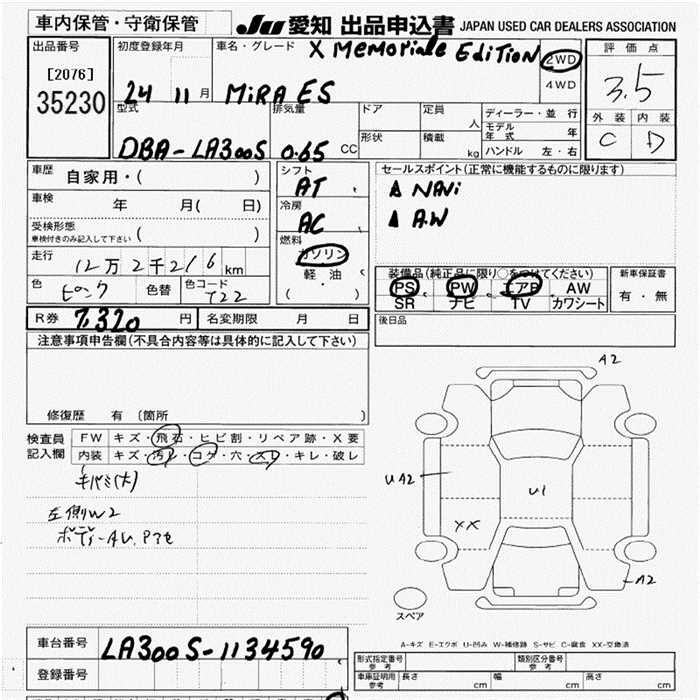 車内保管・守衛保管 JU 愛知 出品申込書 JAPAN USED CAR DEALERS ASSOCIATION
出品番号
[2076]
35230
初度登録年月
24 11 月
車名・グレード X Memoriale Edition
MiRA ES
2WD
4WD
評価点
3.5
外装 内装
C D
型式
DBA-LA300S
排気量
0.65 CC
ドア
形状
定員 人
積載 kg
ディーラー・並行
モデル年式 年
ハンドル 左・右
車歴 自家用・( )
車検 年 月( 日)
受検形態
車検付きのみ記入して下さい ( )
走行 12万2千216 km
色 ピンク 色替 色コード T22
シフト
AT
冷房
AC
燃料
ガソリン
軽・油
( )
セールスポイント(正常に機能するものに限ります)
▲ NAVi
▲ A.W
装備品(純正品に限り○をつけてください)
PS PW エアB AW
SR ナビ TV カワシート
新車保証書
有・無
R券 7,320 円 名変期限 月 日
後日品
注意事項申告欄(不具合内容等は具体的に記入して下さい)
修復歴 有 〔箇所 〕
検査員記入欄
FW キズ・飛石・ヒビ割・リペア跡・X要
内装 キズ・汚レ・コゲ・穴・スレ・キレ・破レ
左側W2
A2
UA2
U1
XX
A2
スペア
A-キズ E-エクボ U-凹み W-補修跡 S-サビ C-腐食 XX-交換済
車台番号 LA300S-1134590
登録番号
形式指定番号 参考
類別区分番号 参考
車庫証明用 参考 長さ cm 幅 cm 高さ cm